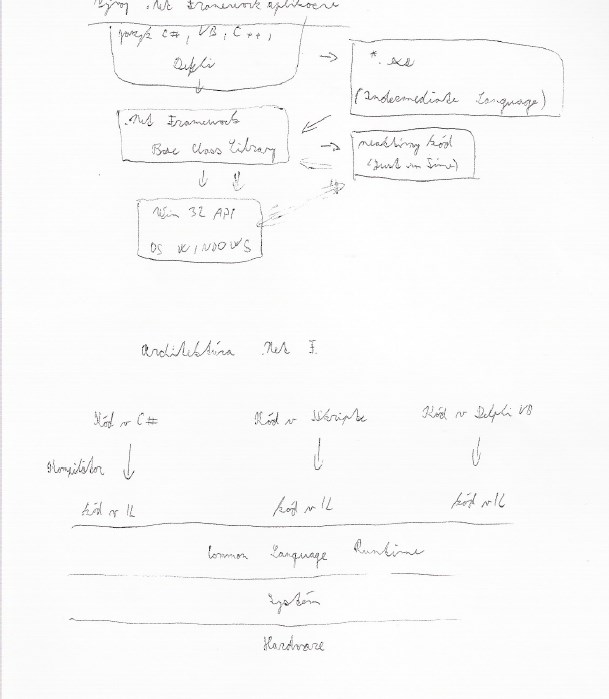 Vývoj .Net Framework aplikácie
jazyk C#, VB, C++,
Delphi
*.exe
(Intermediate Language)
.Net Framework
Base Class Library
neaktívny kód
(Just in Time)
Win 32 API
OS WINDOWS
Architektúra .Net F.
Kód v C#
Kód v JSkripte
Kód v Delphi VB
Kompilátor
kód v IL
kód v IL
kód v IL
Common Language Runtime
Systém
Hardware